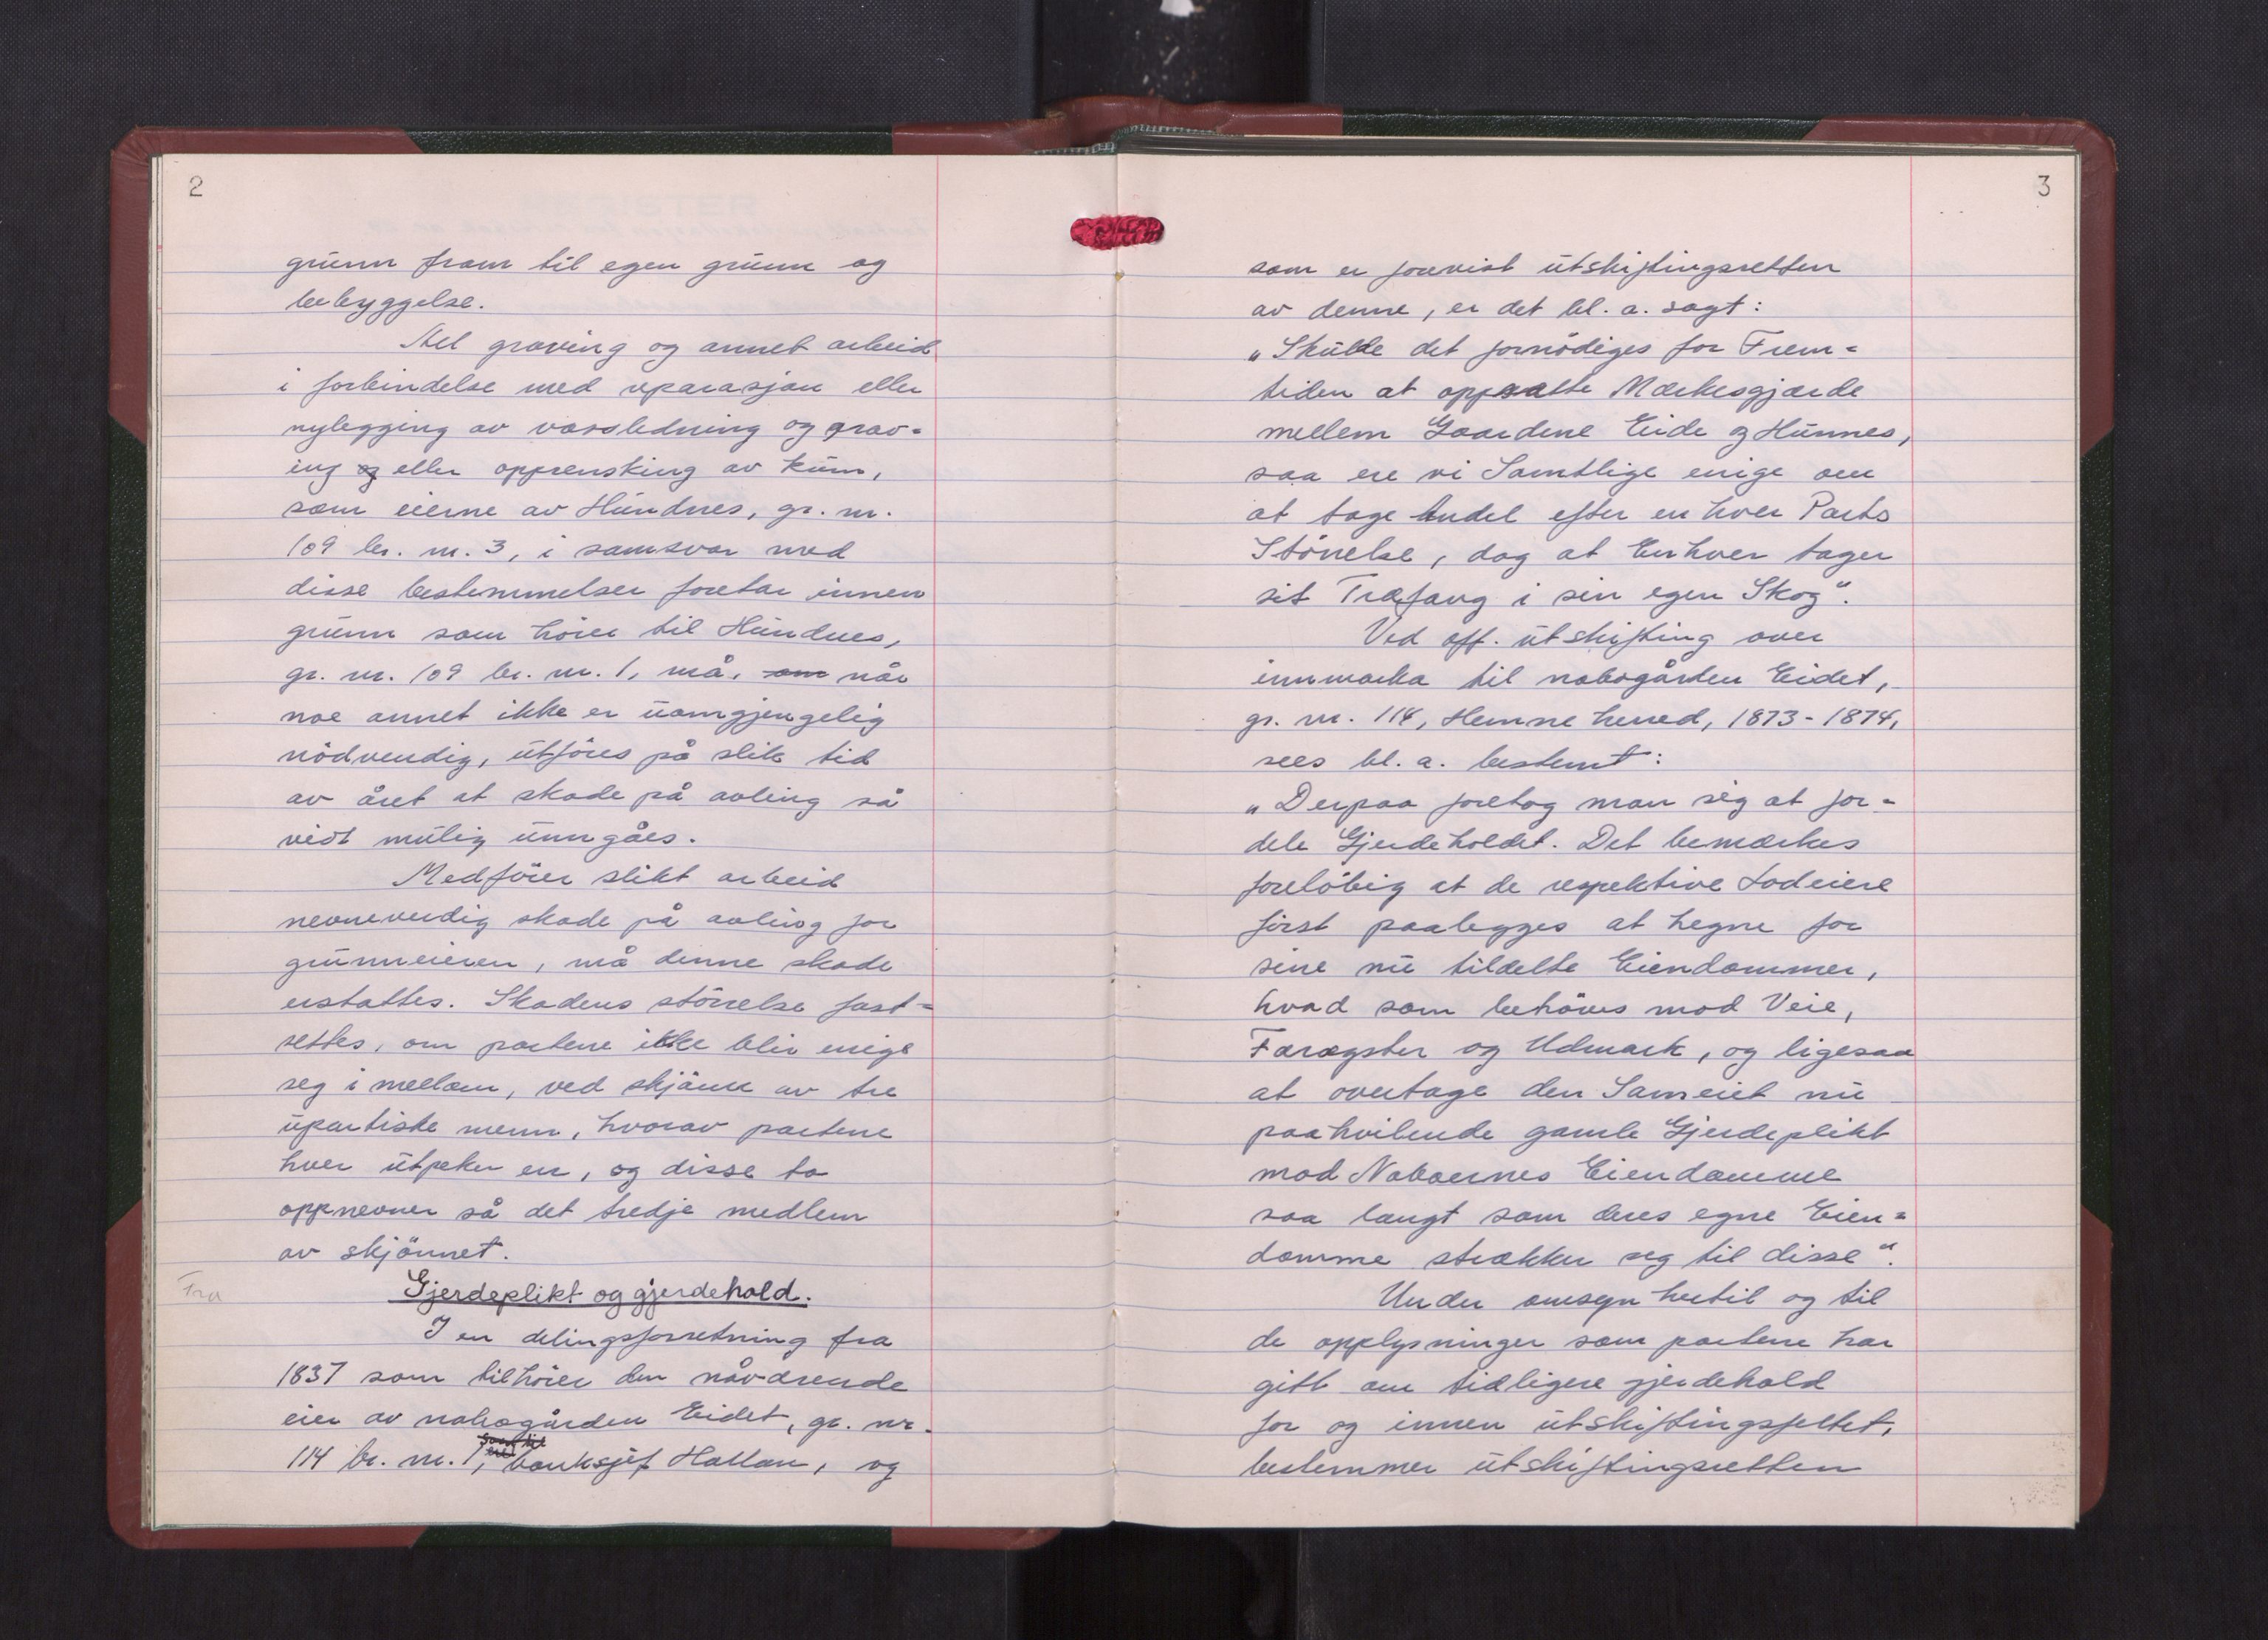 2
grunn fram til egen grunn og
bebyggelse.
Ael graving og annet arbeid
i forbindelse med reparasjon eller
nylegging av vassledning og grav-
ing og eller opprensking av kum,
som eierne av Hundnes, gr. nr.
109 br. nr. 3, i samsvar med
disse bestemmelser foretar innen
grunn som hörer til Hundnes,
gr. nr. 109 br. nr. 1, må, om når
noe annet ikke er uomgjengelig
nödvendig, utföres på slik tid
av året at skade på avling så
vidt mulig unngåes.
Medförer slikt arbeid
nevneverdig skade på avling for
grunneieren, må denne skade
erstattes. Skadens störrelse fast-
settes, om partene ikke blir enige
seg i mellom, ved skjönn av tre
upartiske menn, hvorav partene
hver utpeker en, og disse to
oppnevner så det tredje medlem
av skjönnet.
Fra
Gjerdeplikt og gjerdehold.
I en delingsforretning fra
1837 som tilhörer den nåværende
eier av nabogården Eidet, gr. nr.
114 br. nr. 1, banksjef Hallan, og
3
som er forevist utskiftingsretten
av denne, er det bl. a. sagt:
„Skulde det fornödiges for Frem-
tiden at oppsætte Mærkesgjærde
mellem Gaardene Eide og Hunnes,
saa ere vi Samtlige enige om
at tage Andel efter en hver Parts
Störrelse, dog at Enhver tager
sit Træfang i sin egen Skog“.
Ved off. utskifting over
innmarka til nabogården Eidet,
gr. nr. 114, Hemne herred, 1873-1874,
sees bl. a. bestemt:
„Derpaa foretog man sig at for-
dele Gjerdeholdet. Det bemærkes
forelöbig at de respektive Lodeiere
först paalegges at hegne for
sine nu tildelte Eiendommer,
hvad som behöves mod Veie,
Færægster og Udmark, og ligesaa
at overtage den Sameiet nu
paahvilende gamle Gjerdeplikt
mod Naboernes Eiendomme
saa langt som deres egne Eien-
domme strækker seg til disse“.
Under omsyn hertil og til
de opplysninger som partene har
gitt om tidligere gjerdehold
for og innen utskiftingsfeltet,
bestemmer utskiftingsretten